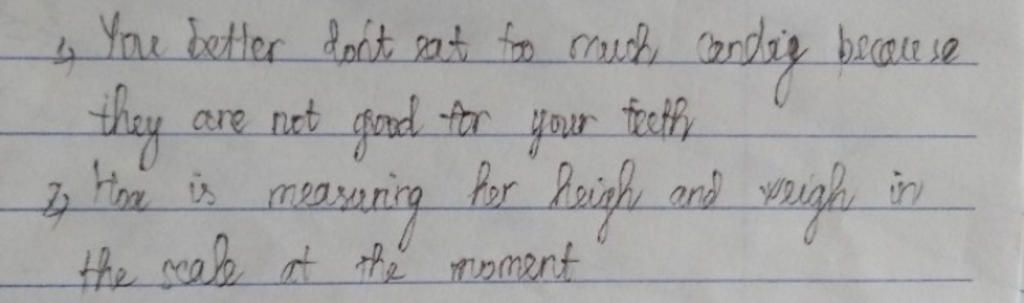 1, You better don't eat too much candig because
they are not good for your teeth
2, Hoa is measuring her heigh and weigh in
the scale at the moment